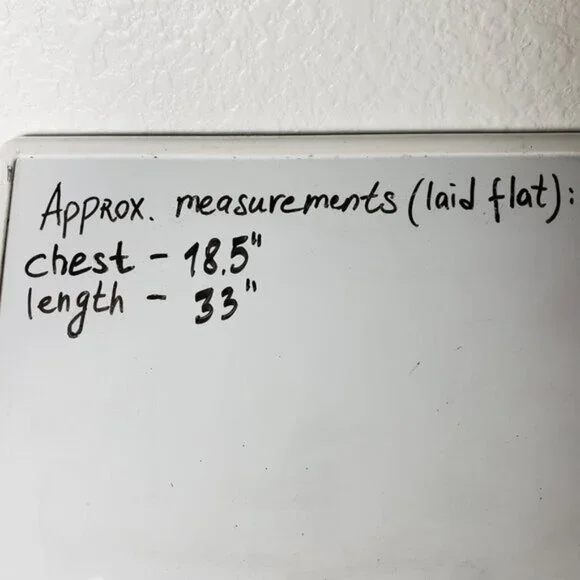 Approx. measurements (laid flat):
chest - 18.5"
length - 33"